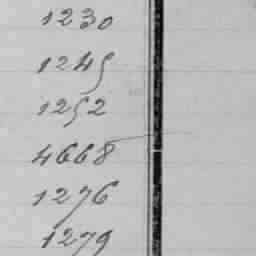 1230
1245
1252
4668
1276
1279